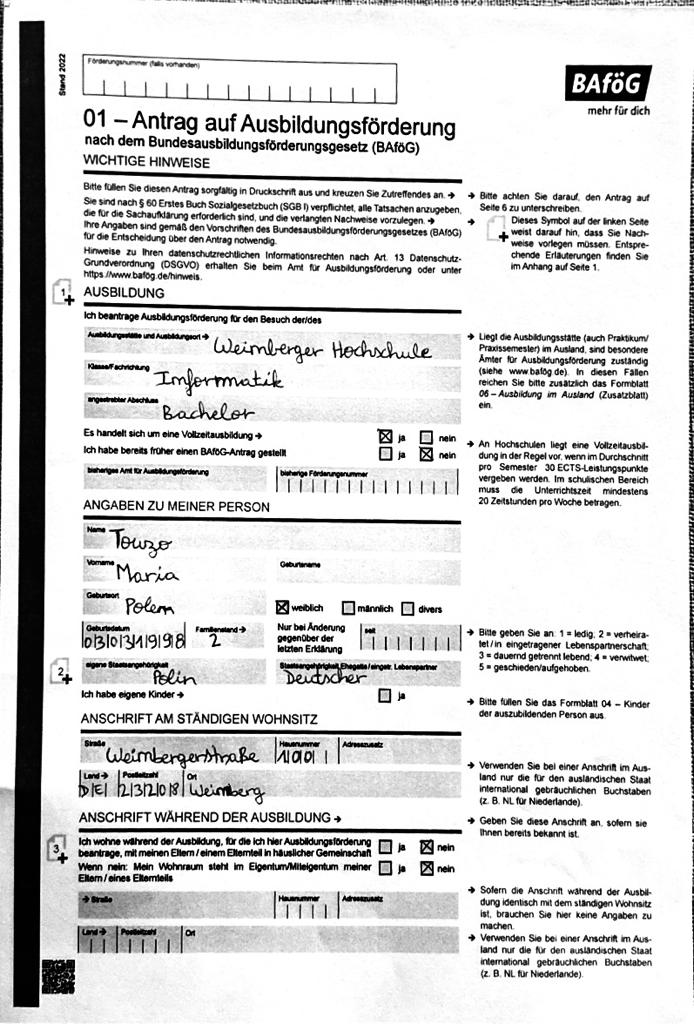 Stand 2022
Förderungsnummer (falls vorhanden)
BAföG
mehr für dich
01 – Antrag auf Ausbildungsförderung
nach dem Bundesausbildungsförderungsgesetz (BAföG)
WICHTIGE HINWEISE
Bitte füllen Sie diesen Antrag sorgfältig in Druckschrift aus und kreuzen Sie Zutreffendes an. →
Sie sind nach § 60 Erstes Buch Sozialgesetzbuch (SGB I) verpflichtet, alle Tatsachen anzugeben,
die für die Sachaufklärung erforderlich sind, und die verlangten Nachweise vorzulegen. →
Ihre Angaben sind gemäß den Vorschriften des Bundesausbildungsförderungsgesetzes (BAföG)
für die Entscheidung über den Antrag notwendig.
Hinweise zu Ihren datenschutzrechtlichen Informationsrechten nach Art. 13 Datenschutz-
Grundverordnung (DSGVO) erhalten Sie beim Amt für Ausbildungsförderung oder unter
https://www.bafög.de/hinweis.
→ Bitte achten Sie darauf, den Antrag auf
Seite 6 zu unterschreiben.
→ Dieses Symbol auf der linken Seite
weist darauf hin, dass Sie Nach-
weise vorlegen müssen. Entspre-
chende Erläuterungen finden Sie
im Anhang auf Seite 1.
1 AUSBILDUNG
Ich beantrage Ausbildungsförderung für den Besuch der/des
Ausbildungsstätte und Ausbildungsort → Weimberger Hochschule
Klasse/Fachrichtung Informatik
angestrebter Abschluss Bachelor
→ Liegt die Ausbildungsstätte (auch Praktikum/
Praxissemester) im Ausland, sind besondere
Ämter für Ausbildungsförderung zuständig
(siehe www.bafög.de). In diesen Fällen
reichen Sie bitte zusätzlich das Formblatt
06 – Ausbildung im Ausland (Zusatzblatt)
ein.
Es handelt sich um eine Vollzeitausbildung → ☒ ja ☐ nein
Ich habe bereits früher einen BAföG-Antrag gestellt ☐ ja ☒ nein
bisheriges Amt für Ausbildungsförderung bisherige Förderungsnummer
→ An Hochschulen liegt eine Vollzeitausbil-
dung in der Regel vor, wenn im Durchschnitt
pro Semester 30 ECTS-Leistungspunkte
vergeben werden. Im schulischen Bereich
muss die Unterrichtszeit mindestens
20 Zeitstunden pro Woche betragen.
ANGABEN ZU MEINER PERSON
Name Touzo
Vorname Maria Geburtsname
Geburtsort Polen ☒ weiblich ☐ männlich ☐ divers
Geburtsdatum 03031998 Familienstand → 2 Nur bei Änderung gegenüber der letzten Erklärung seit
→ Bitte geben Sie an: 1 = ledig; 2 = verheira-
tet / in eingetragener Lebenspartnerschaft;
3 = dauernd getrennt lebend; 4 = verwitwet;
5 = geschieden/aufgehoben.
2 eigene Staatsangehörigkeit Polin Staatsangehörigkeit Ehegatte / eingetr. Lebenspartner Deutscher
Ich habe eigene Kinder → ☐ ja
→ Bitte füllen Sie das Formblatt 04 – Kinder
der auszubildenden Person aus.
ANSCHRIFT AM STÄNDIGEN WOHNSITZ
Straße Weimbergerstraße Hausnummer 100 Adresszusatz
Land → DE Postleitzahl 23208 Ort Weimberg
→ Verwenden Sie bei einer Anschrift im Aus-
land nur die für den ausländischen Staat
international gebräuchlichen Buchstaben
(z. B. NL für Niederlande).
ANSCHRIFT WÄHREND DER AUSBILDUNG →
→ Geben Sie diese Anschrift an, sofern sie
Ihnen bereits bekannt ist.
3 Ich wohne während der Ausbildung, für die ich hier Ausbildungsförderung
beantrage, mit meinen Eltern / einem Elternteil in häuslicher Gemeinschaft ☐ ja ☒ nein
Wenn nein: Mein Wohnraum steht im Eigentum/Miteigentum meiner
Eltern / eines Elternteils ☐ ja ☒ nein
→ Straße Hausnummer Adresszusatz
Land → Postleitzahl Ort
→ Sofern die Anschrift während der Ausbil-
dung identisch mit dem ständigen Wohnsitz
ist, brauchen Sie hier keine Angaben zu
machen.
→ Verwenden Sie bei einer Anschrift im Aus-
land nur die für den ausländischen Staat
international gebräuchlichen Buchstaben
(z. B. NL für Niederlande).